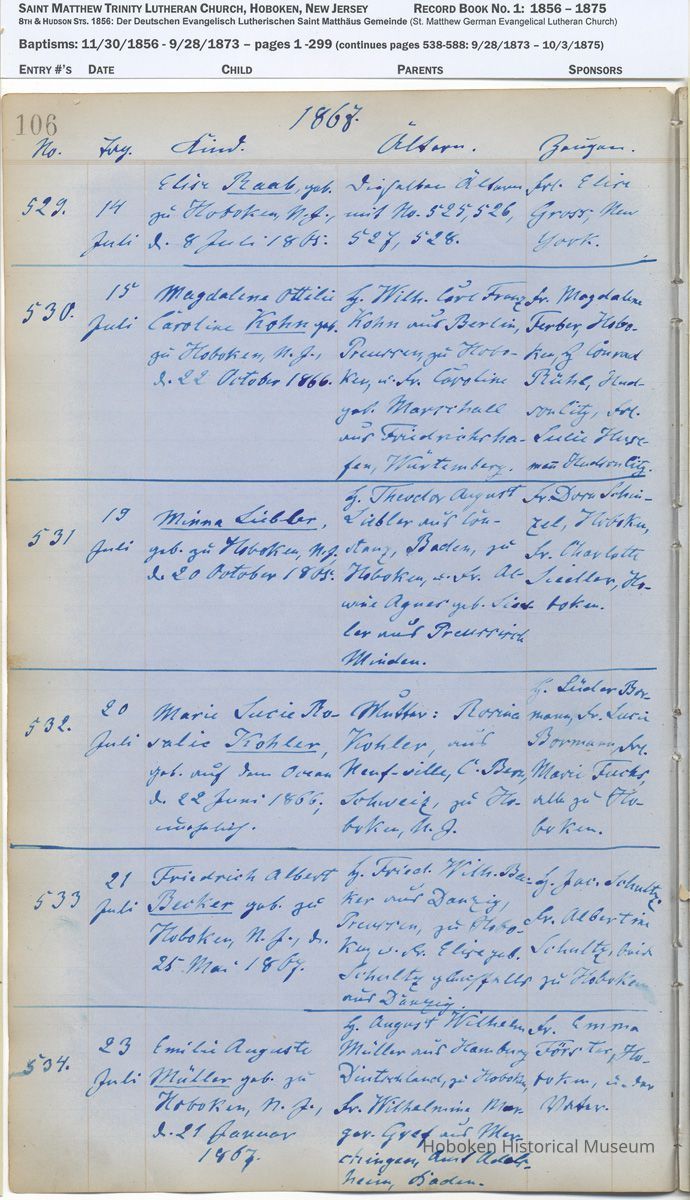 SAINT MATTHEW TRINITY LUTHERAN CHURCH, HOBOKEN, NEW JERSEY RECORD BOOK NO. 1: 1856 – 1875
8TH & HUDSON STS. 1856: Der Deutschen Evangelisch Lutherischen Saint Matthäus Gemeinde (St. Matthew German Evangelical Lutheran Church)
Baptisms: 11/30/1856 - 9/28/1873 – pages 1 -299 (continues pages 538-588: 9/28/1873 – 10/3/1875)
ENTRY #'S DATE CHILD PARENTS SPONSORS
106
1867.
No. Tag. Kind. Ältern. Zeugen.
529.
14
Juli
Elise Raab, geb.
zu Hoboken, N.J.,
d. 8 Juli 1865.
Dieselben Ältern
mit No. 525, 526,
527, 528.
Frl. Elise
Gross, New
York.
530.
15
Juli
Magdalena Ottilie
Caroline Kohn geb.
zu Hoboken, N. J.,
d. 22 October 1866.
H. Wilh. Carl Franz
Kohn aus Berlin,
Preussen, zu Hobo-
ken, u. Fr. Caroline
geb. Marschall
aus Friedrichsha-
fen, Würtemberg.
Fr. Magdalene
Ferber, Hobo-
ken, H. Conrad
Rühl, Hud-
son City, Frl.
Lucie
Hudson City.
531
19
Juli
Minna Liebler,
geb. zu Hoboken, N.J,
d. 20 October 1865.
H. Theodor August
Liebler aus Con-
stanz, Baden, zu
Hoboken, u. Fr. Al-
wine Agnes geb. Sied-
ler aus Preussisch
Minden.
Fr. Dora
Hoboken,
Fr. Charlotte
Siedler, Ho-
boken.
532.
20
Juli
Marie Lucie Ro-
salie Kohler,
geb. auf dem Ocean
d. 22 Juni 1866,
unehelich.
Mutter: Rosina
Kohler, aus
Neuf-ville, C. Bern,
Schweiz, zu Ho-
boken, N. J.
H. Lüder Bor-
mann, Fr. Lucie
Bormann, Frl.
Marie Fuchs,
alle zu Ho-
boken.
533
21
Juli
Friedrich Albert
Becker geb. zu
Hoboken, N. J., d.
25 Mai 1867.
H. Fried. Wilh. Be-
ker aus Danzig,
Preussen, zu Hobo-
ken, u. Fr. Elise geb.
Schultz gleichfalls
aus Danzig.
H. Jac. Schultz,
Fr. Albertine
Schultz, beide
zu Hoboken
534.
23
Juli
Emilie Auguste
Müller geb. zu
Hoboken, N. J.,
d. 21 Januar
1867.
H. August Wilhelm
Müller aus Hamburg
Deutschland, zu Hoboken,
Fr. Wilhelmine Mar-
gar. Graf aus Mer-
chingen, Amt Adels-
heim, Baden.
Fr. Emma
Förster, Ho-
boken, u. der
Vater.
Hoboken Historical Museum